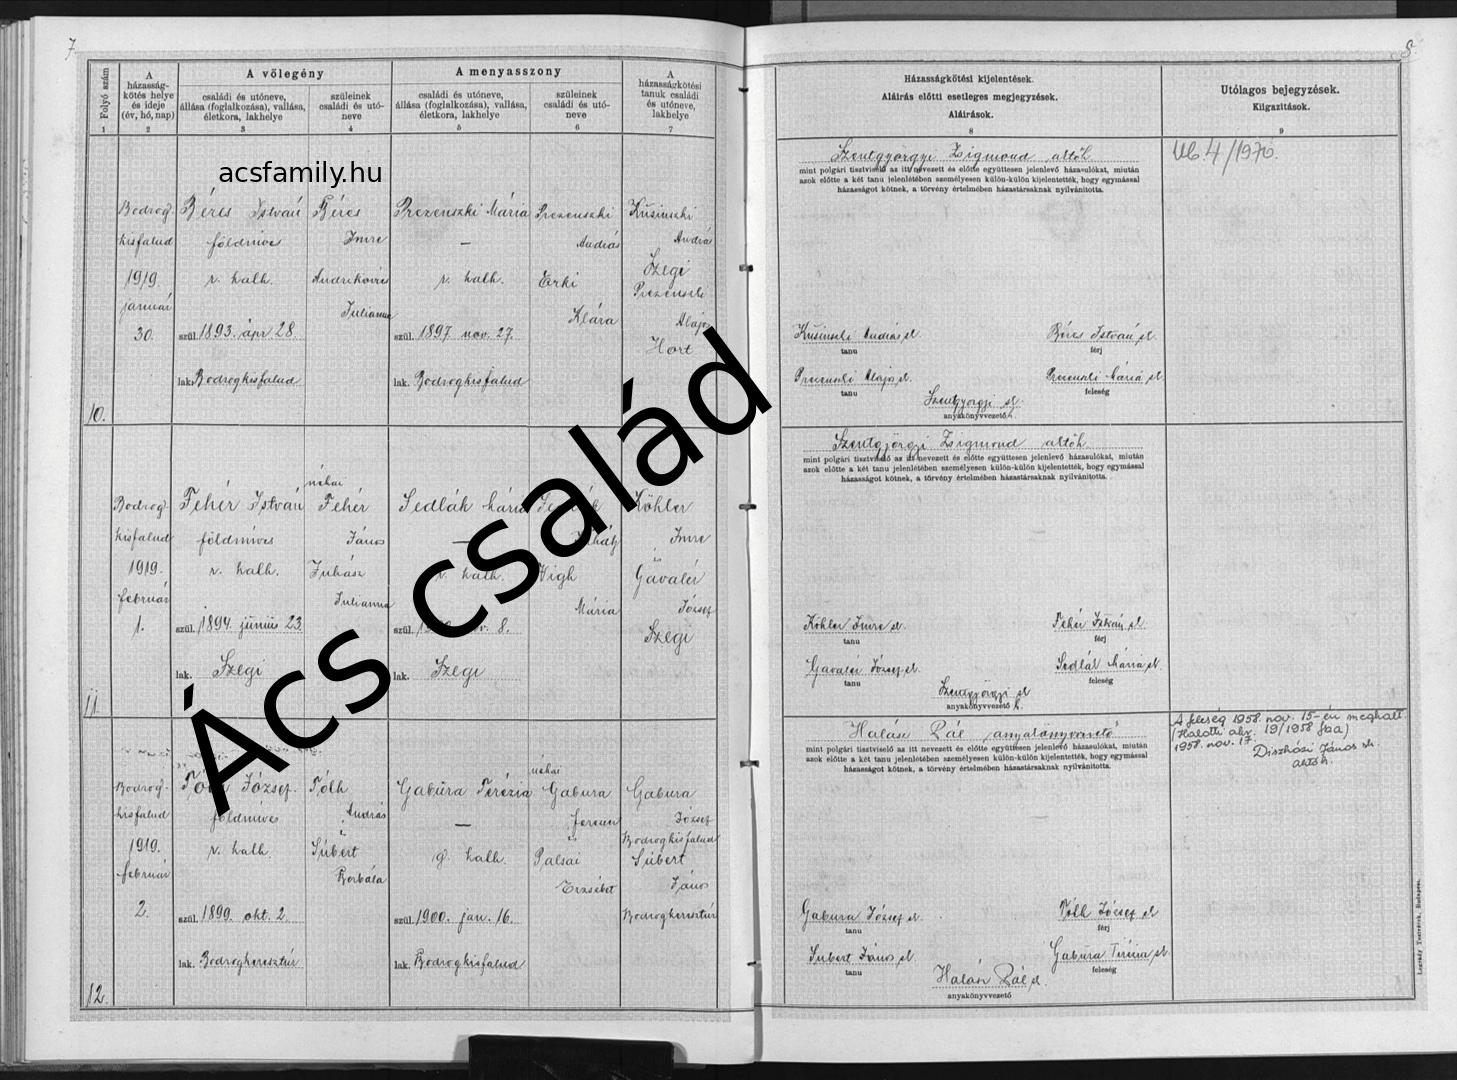 7.
8.
Folyó szám
A
házasság-
kötés helye
és ideje
(év, hó, nap)
A vőlegény
családi és utóneve,
állása (foglalkozása), vallása,
életkora, lakhelye
szüleinek
családi és utó-
neve
A menyasszony
családi és utóneve,
állása (foglalkozása), vallása,
életkora, lakhelye
szüleinek
családi és utó-
neve
A
házasságkötési
tanuk családi
és utóneve,
lakhelye
Házasságkötési kijelentések.
Aláírás előtti esetleges megjegyzések.
Aláírások.
Utólagos bejegyzések.
Kiigazítások.
1
2
3
4
5
6
7
8
9
acsfamily.hu
Ács család
10.
Bodrog-
kisfalud
1919.
január
30.
Béres István
földmíves
r. kath.
szül. 1893. ápr 28.
lak. Bodrogkisfalud
Béres
Imre
Andrikovics
Julianna
Prezenszki Mária
—
r. kath.
szül. 1897. nov. 27.
lak. Bodrogkisfalud
Prezenszki
András
Erki
Klára
Kusinszki
András
Szegi
Prezenszki
Alajos
Hort
Szentgyörgyi Zsigmond
mint polgári tisztviselő az itt nevezett és előtte együttesen jelenlevő házasulókat, miután
azok előtte a két tanu jelenlétében személyesen külön-külön kijelentették, hogy egymással
házasságot kötnek, a törvény értelmében házastársaknak nyilvánította.
Kusinszki András
tanu
Béres István
férj
Prezenszki Alajos
tanu
Prezenszki Mária
feleség
Szentgyörgyi
anyakönyvvezető
4/1970.
11.
Bodrog-
kisfalud
1919.
február
1.
Fehér István
földmíves
r. kath.
szül. 1894. június 23.
lak. Szegi
néhai
Fehér
János
Juhász
Julianna
Sedlák Mária
—
r. kath.
szül. 8.
lak. Szegi
Vigh
Mária
Köhler
Imre
és
Gavalér
József
Szegi
Szentgyörgyi Zsigmond
mint polgári tisztviselő az itt nevezett és előtte együttesen jelenlevő házasulókat, miután
azok előtte a két tanu jelenlétében személyesen külön-külön kijelentették, hogy egymással
házasságot kötnek, a törvény értelmében házastársaknak nyilvánította.
Köhler Imre
tanu
Fehér István
férj
Gavalér József
tanu
Sedlák Mária
feleség
Szentgyörgyi
anyakönyvvezető
12.
Bodrog-
kisfalud
1919.
február
2.
Tóth József
földmíves
r. kath.
szül. 1899. okt. 2.
lak. Bodrogkeresztúr
Tóth
András
Subert
Borbála
Gabura Terézia
—
g. kath.
szül. 1900. jan. 16.
lak. Bodrogkisfalud
néhai
Gabura
Ferenc
és
Palsai
Erzsébet
Gabura
József
Bodrogkisfalud
Subert
János
Bodrogkeresztúr
Halász Pál anyakönyvvezető
mint polgári tisztviselő az itt nevezett és előtte együttesen jelenlevő házasulókat, miután
azok előtte a két tanu jelenlétében személyesen külön-külön kijelentették, hogy egymással
házasságot kötnek, a törvény értelmében házastársaknak nyilvánította.
Gabura József
tanu
Tóth József
férj
Subert János
tanu
Gabura Terézia
feleség
Halász Pál
anyakönyvvezető
A feleség 1958 nov. 15-én meghalt.
(Halotti akv. 19/1958 fsza)
1958. nov. 17.
János